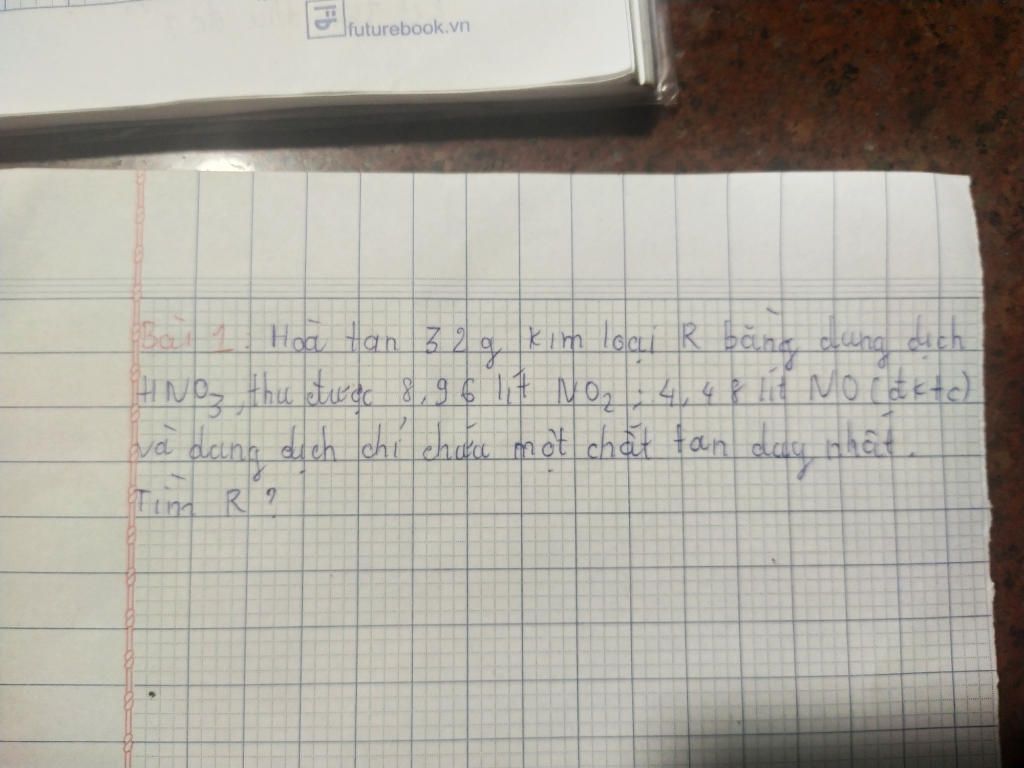 futurebook.vn
Bài 1: Hoà tan 32g kim loại R bằng dung dịch
HNO3, thu được 8,96 lít NO2; 4,48 lít NO (đktc)
và dung dịch chỉ chứa một chất tan duy nhất.
Tìm R?